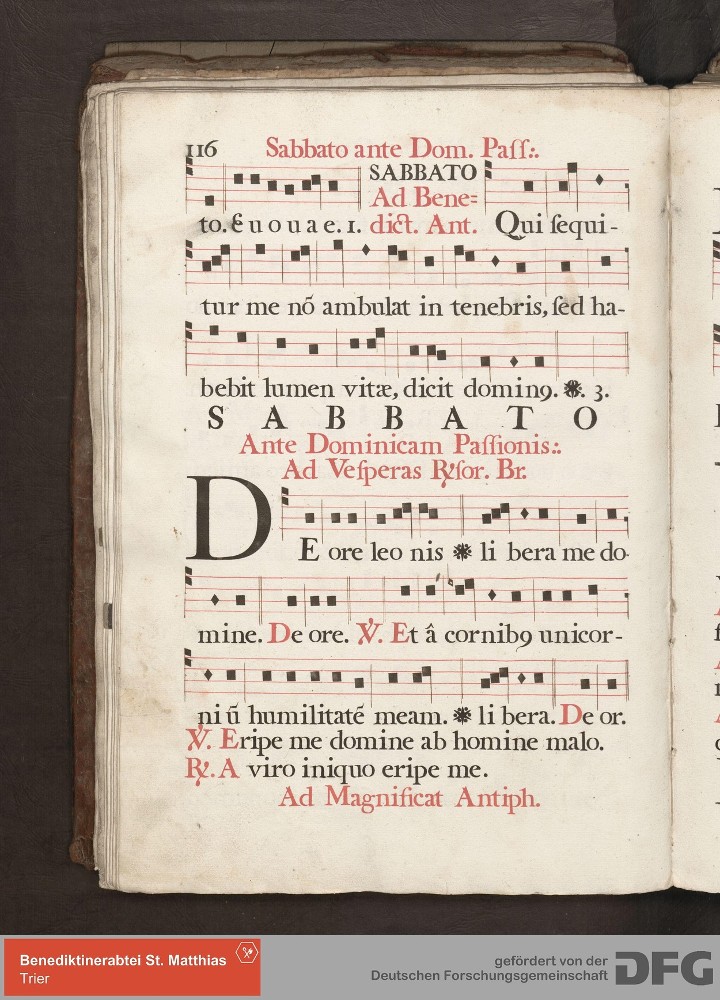 116 Sabbato ante Dom. Paſſ:.
SABBATO
Ad Bene=
to. E u o u a e. 1. dict. Ant. Qui ſequi-
tur me nõ ambulat in tenebris, ſed ha-
bebit lumen vitæ, dicit dominꝯ. ❋. 3.
S A B B A T O
Ante Dominicam Paſſionis:.
Ad Veſperas R̷ſor. Br.
DE ore leo nis ❋ li bera me do-
mine. De ore. V̷. Et â cornibꝯ unicor-
ni ũ humilitatẽ meam. ❋ li bera. De or.
V̷. Eripe me domine ab homine malo.
R̷. A viro iniquo eripe me.
Ad Magnificat Antiph.
Benediktinerabtei St. Matthias
Trier
gefördert von der
Deutschen Forschungsgemeinschaft DFG